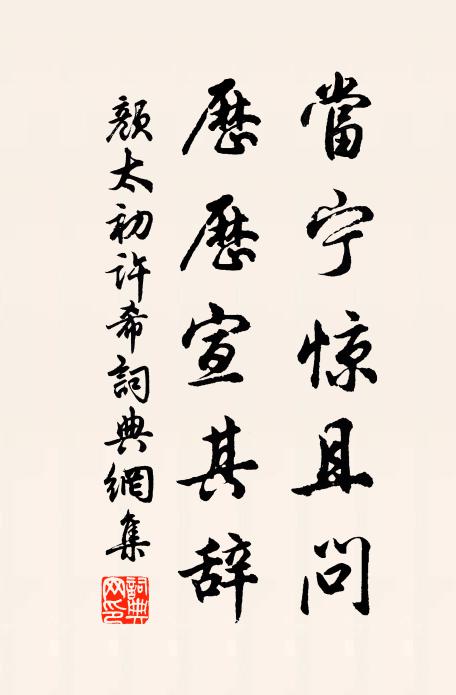 當宁惊且问
歷歷宣其辞
顏太初許希詞典網集
詞典网印